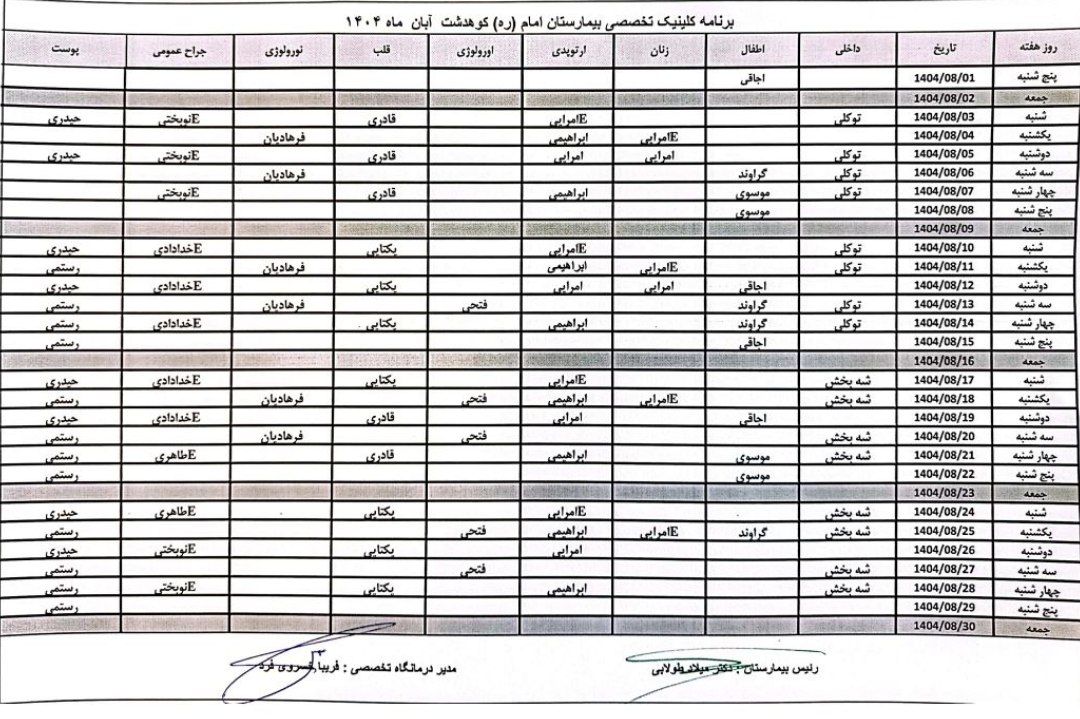 برنامه کلینیک تخصصی بیمارستان امام (ره) کوهدشت آبان ماه ۱۴۰۴
روز هفته تاریخ داخلی اطفال زنان ارتوپدی اورولوژی قلب نورولوژی جراح عمومی پوست
پنج شنبه 1404/08/01 اجاقی
جمعه 1404/08/02
شنبه 1404/08/03 توکلی Eامرایی قادری Eنوبختی حیدری
یکشنبه 1404/08/04 Eامرایی ابراهیمی فرهادیان
دوشنبه 1404/08/05 توکلی امرایی امرایی قادری Eنوبختی حیدری
سه شنبه 1404/08/06 توکلی گراوند فرهادیان
چهار شنبه 1404/08/07 توکلی موسوی ابراهیمی قادری Eنوبختی
پنج شنبه 1404/08/08 موسوی
جمعه 1404/08/09
شنبه 1404/08/10 توکلی Eامرایی یکتایی Eخدادادی حیدری
یکشنبه 1404/08/11 توکلی Eامرایی ابراهیمی فرهادیان رستمی
دوشنبه 1404/08/12 اجاقی امرایی امرایی یکتایی Eخدادادی حیدری
سه شنبه 1404/08/13 توکلی گراوند فتحی فرهادیان رستمی
چهار شنبه 1404/08/14 توکلی گراوند ابراهیمی یکتایی Eخدادادی رستمی
پنج شنبه 1404/08/15 اجاقی رستمی
جمعه 1404/08/16
شنبه 1404/08/17 شه بخش Eامرایی یکتایی Eخدادادی حیدری
یکشنبه 1404/08/18 شه بخش Eامرایی ابراهیمی فتحی فرهادیان رستمی
دوشنبه 1404/08/19 اجاقی امرایی قادری Eخدادادی حیدری
سه شنبه 1404/08/20 شه بخش فتحی فرهادیان رستمی
چهار شنبه 1404/08/21 شه بخش موسوی ابراهیمی قادری Eطاهری رستمی
پنج شنبه 1404/08/22 موسوی رستمی
جمعه 1404/08/23
شنبه 1404/08/24 شه بخش Eامرایی یکتایی Eطاهری حیدری
یکشنبه 1404/08/25 شه بخش گراوند Eامرایی ابراهیمی فتحی رستمی
دوشنبه 1404/08/26 امرایی یکتایی Eنوبختی حیدری
سه شنبه 1404/08/27 شه بخش فتحی رستمی
چهار شنبه 1404/08/28 شه بخش ابراهیمی یکتایی Eنوبختی رستمی
پنج شنبه 1404/08/29 رستمی
جمعه 1404/08/30
رئیس بیمارستان : دکتر میلاد طولابی مدیر درمانگاه تخصصی : فریبا خسروی فرد